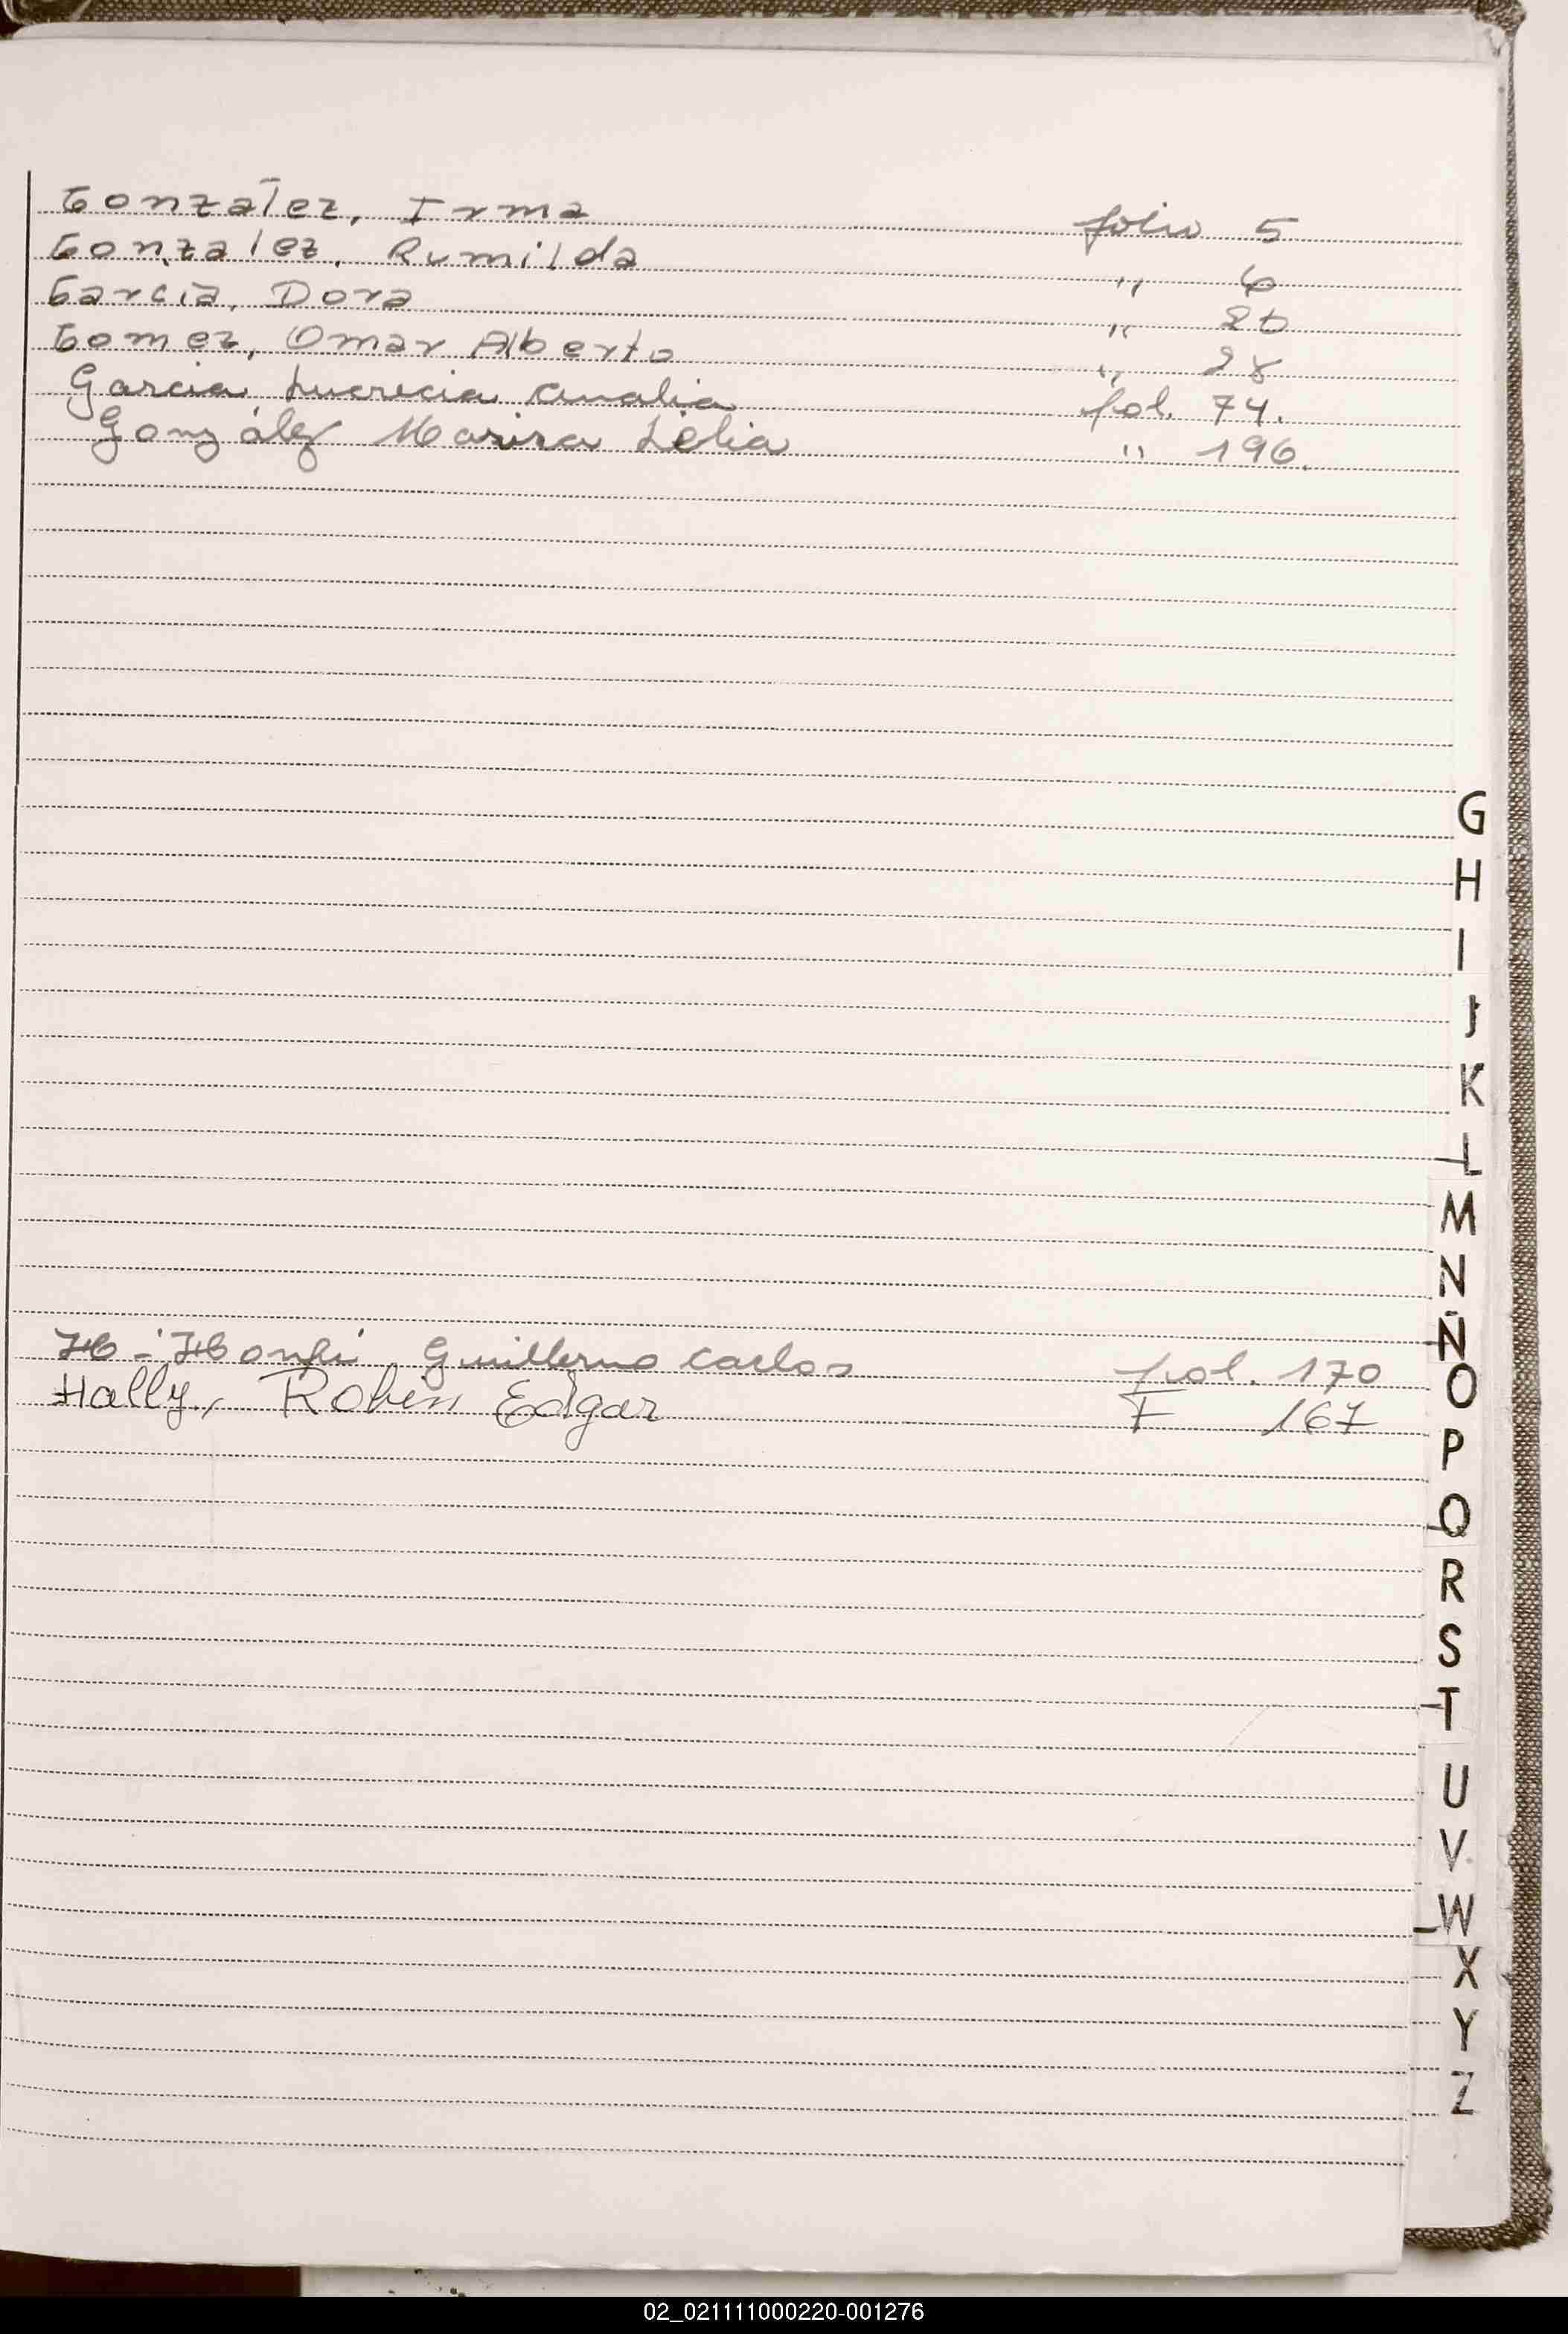 González, Irma folio 5
Gonzalez, Rumilda " 6
García, Dora " 26
Gomez, Omar Alberto " 28
Garcia, Lucrecia Analia fol. 74.
González Marisa Lelia " 196.
G
H
I
J
K
L
M
N
Ñ
H - Guillermo Carlos fol. 170
O
Hally, Robin Edgar F 167
P
Q
R
S
T
U
V
W
X
Y
Z
02_021111000220-001276